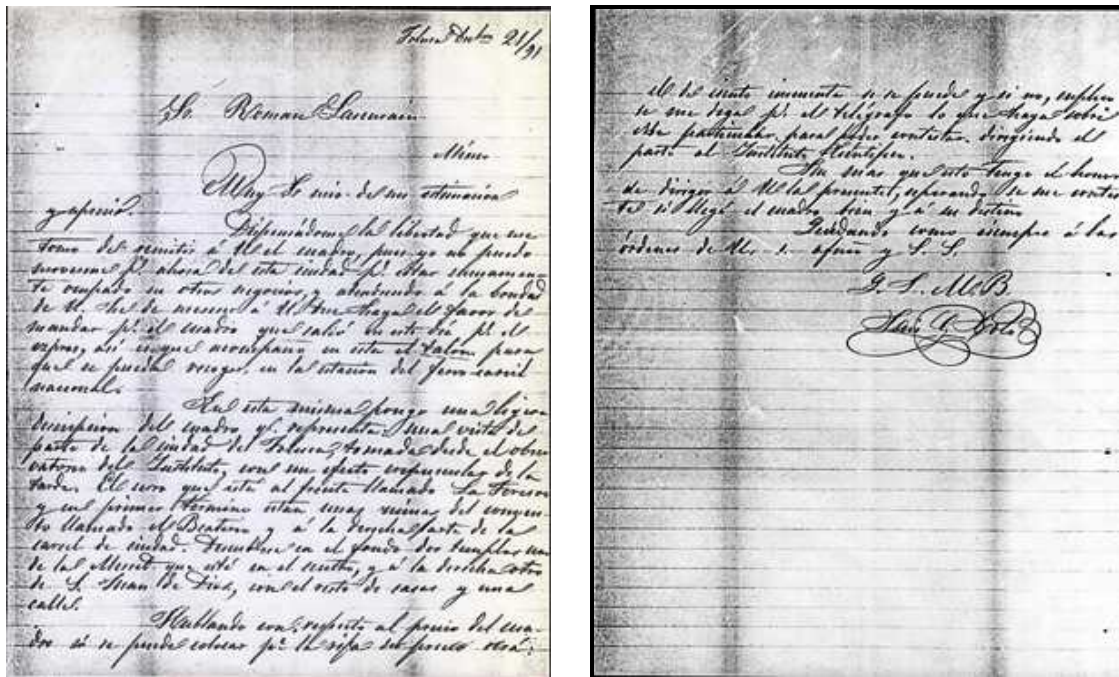 Toluca Dbre 21/91
Sr. Roman S. Lascurain
México
Muy Sr. mio de mi estimación
y aprecio.
Dispensándome la libertad que me
tomo de remitir á U. el cuadro, pues yo no puedo
moverme pr. ahora de esta ciudad pr. estar sumamen-
te ocupado en otros negocios, y atendiendo á la bondad
de U. hé de merecer á U. me haga el favor de
mandar pr. el cuadro que salió en este dia pr. el
express, así es que acompaño en ésta el talon para
que se pueda recoger en la estacion del ferro-carril
nacional.
En esta misma pongo una ligera
descripcion del cuadro qe. representa: una vista de
parte de la ciudad de Toluca, tomada desde el obser
vatorio del Instituto, con un efecto crepuscular de la
tarde. El cerro que está al frente llamado La Teresona
y en primer término están unas ruinas del conven-
to llamado el Beaterio, y á la derecha parte de la
carcel de ciudad. Descúbrese en el fondo dos templos uno
de la Merced que está en el centro, y á la derecha otro
de S. Juan de Dios, con el resto de casas y una
calle.
Hablando con respecto al precio del cua-
dro si se puede colocar pr. la rifa su precio será:
el de ciento cincuenta si se puede y si no, suplico
se me diga pr. el telégrafo lo que haga sobre
este particular, para poder contestar, dirigiendo el
parte al Instituto Científico.
Sin mas que esto tengo el honor
de dirigir á U. la presente, esperando se me contes
te si llegó el cuadro bien y á su destino
Quedando como siempre á las
órdenes de U. s. afmo. y S. S.
Q. S. M. B.
Luis